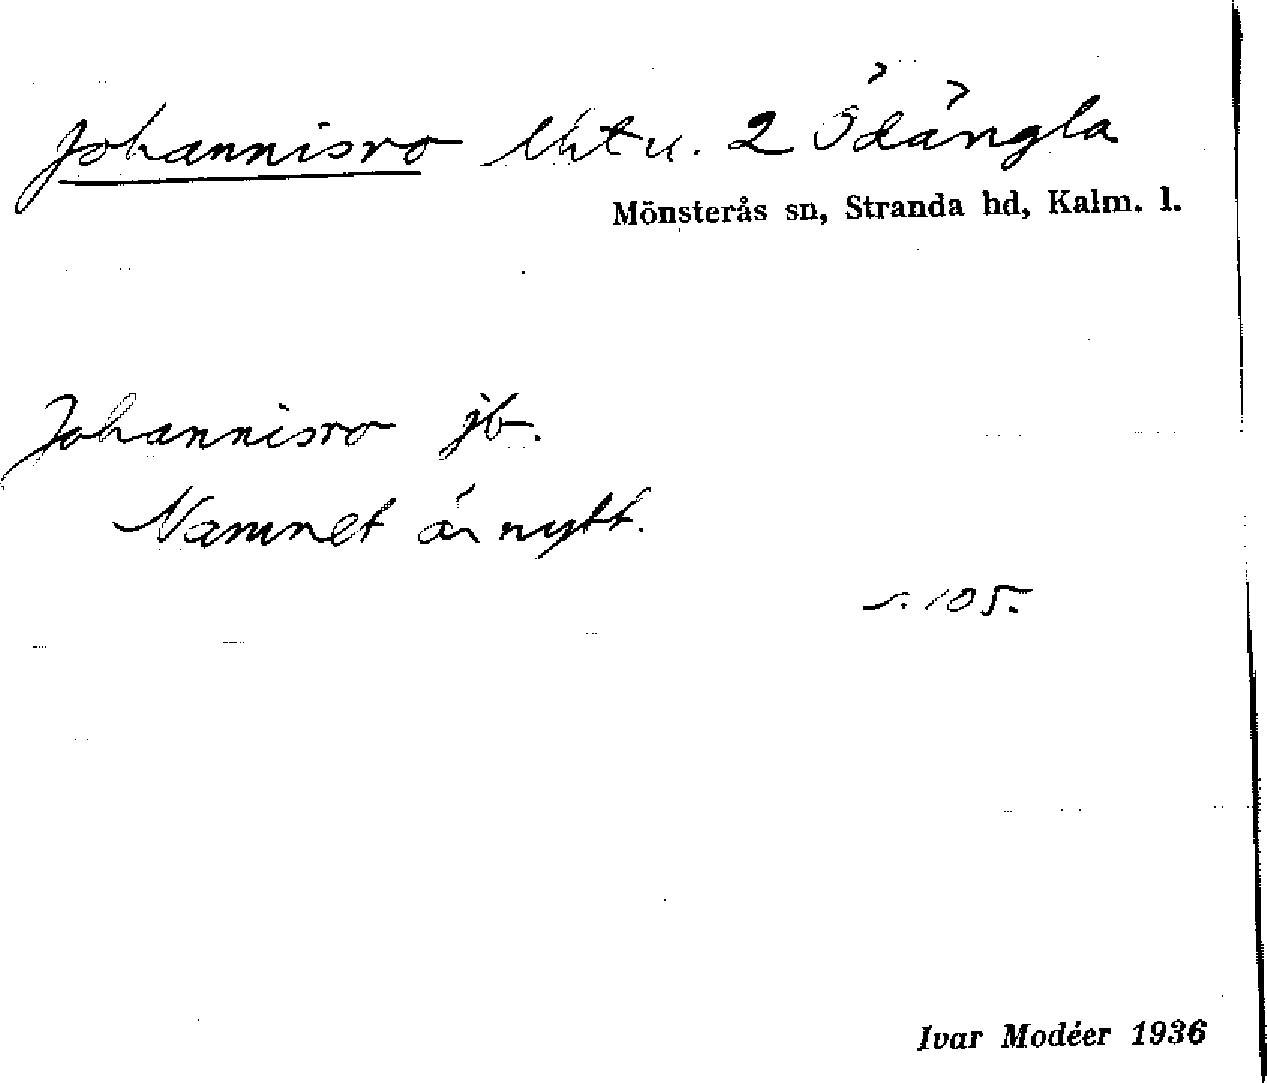 Johannisro lht u. 2 Ödängla
Mönsterås sn, Stranda hd, Kalm. l.
Johannisro jb.
Namnet är nytt.
s. 105.
Ivar Modéer 1936